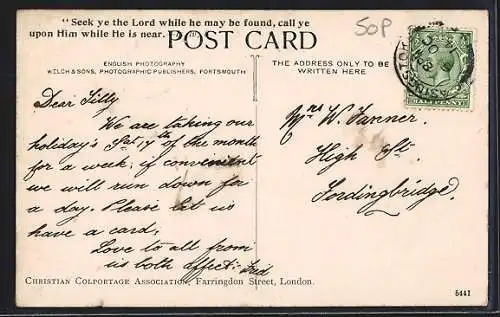 "Seek ye the Lord while he may be found, call ye
upon Him while He is near.
50P
POST CARD
ENGLISH PHOTOGRAPHY
WELCH & SONS, PHOTOGRAPHIC PUBLISHERS, PORTSMOUTH
THE ADDRESS ONLY TO BE
WRITTEN HERE
HALFPENNY
Dear Tilly
We are taking our
holiday's Sat 17th of the month
for a week; if convenient
we will run down for
a day. Please let us
have a card;
Love to all from
us both affect: Fred
Mrs W. Tanner.
High St.
Fordingbridge.
CHRISTIAN COLPORTAGE ASSOCIATION, Farringdon Street, London.
5441